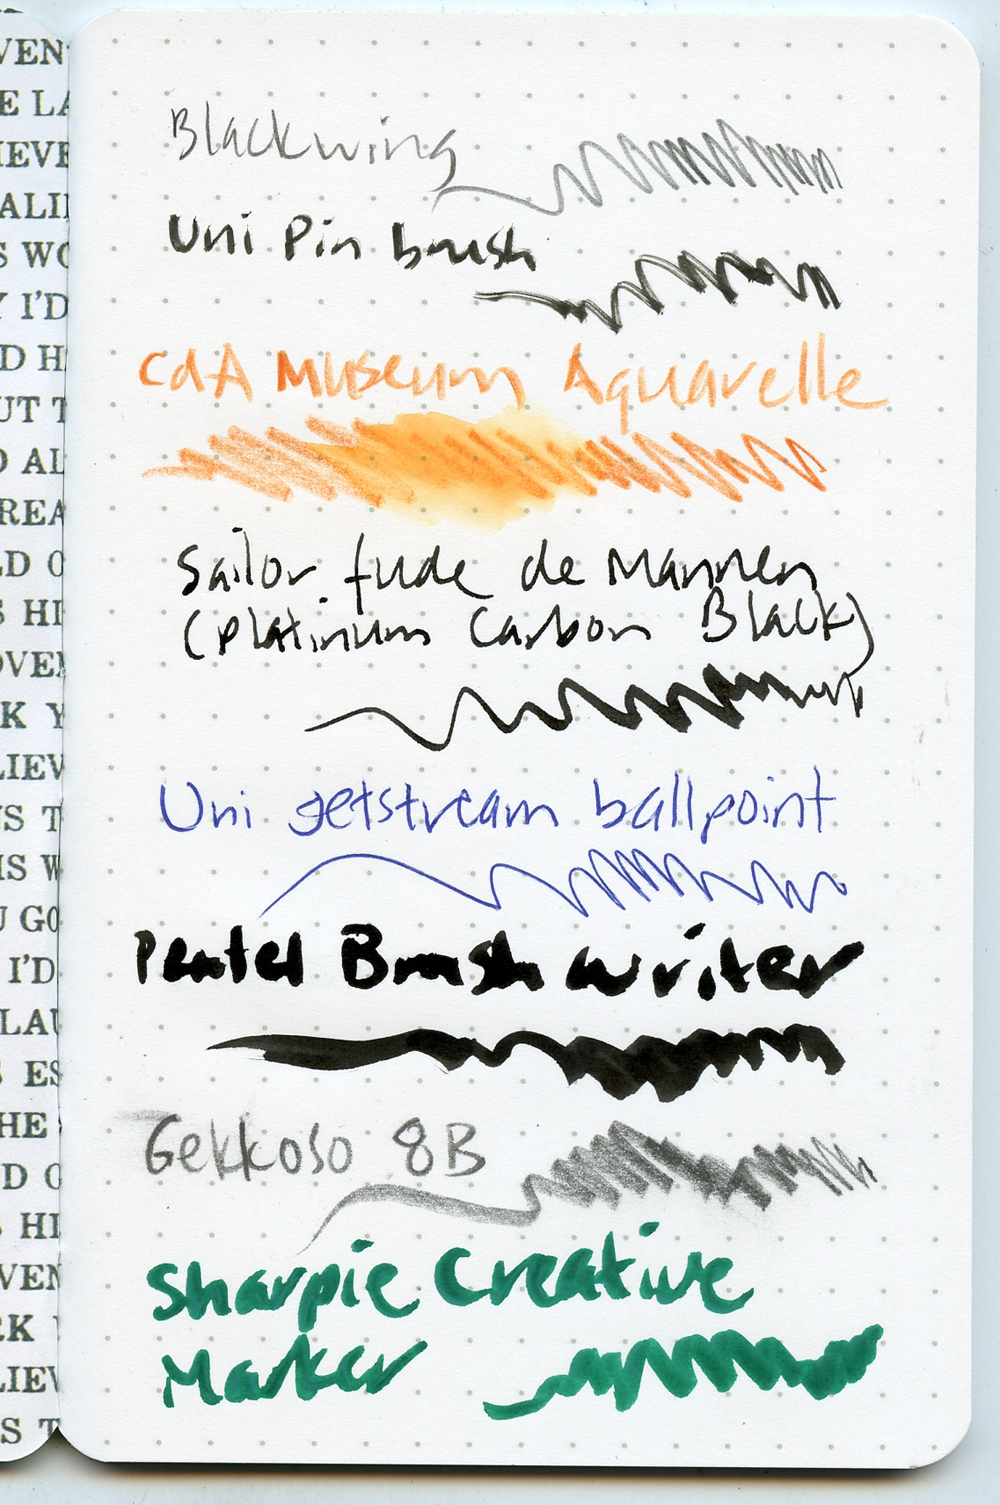 VEN
E LA
IEVE
ALI
S WO
Y I'D
D H
UT T
D AL
REA
LD O
S HI
OVEN
K Y
LIEV
NS T
IS W
U GO
I'D
LAU
S ES
HE
D O
S HI
VEN
RK
LIEV
S T
Blackwing
Uni Pin brush
CdA Museum Aquarelle
Sailor fude de Mannen
(Platinum Carbon Black)
Uni jetstream ballpoint
Pentel Brush writer
Gekkoso 8B
Sharpie Creative
Marker